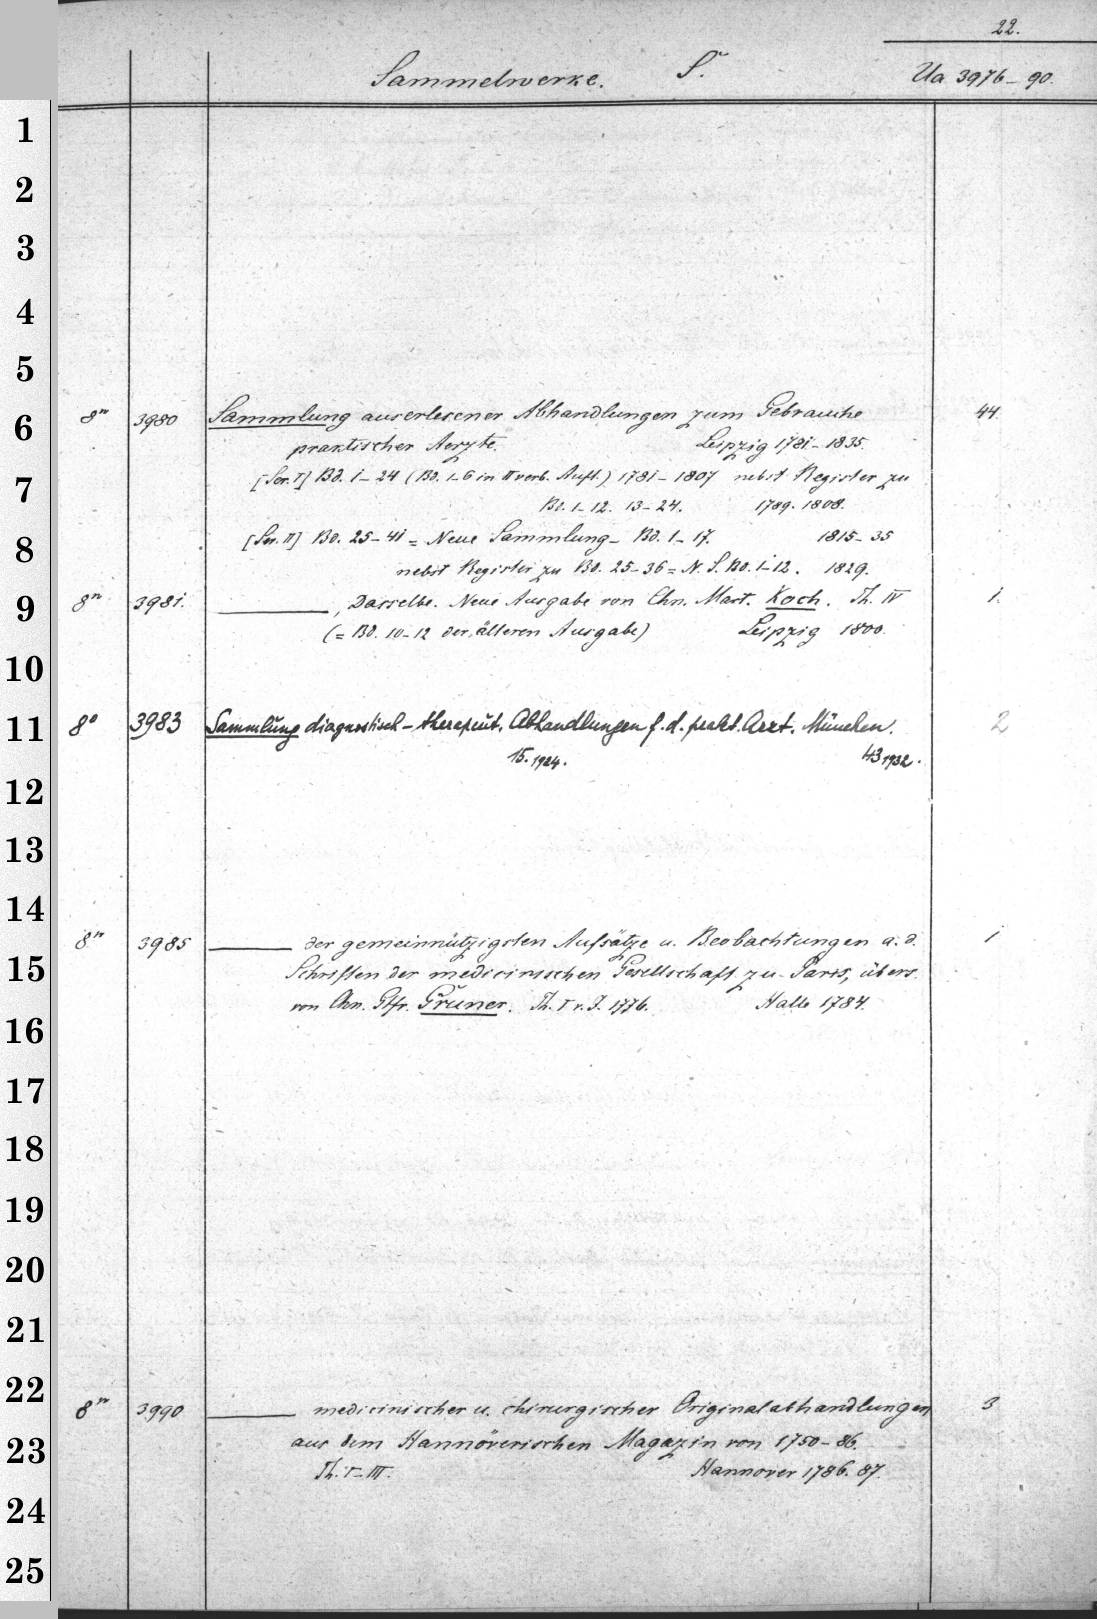 22.
Sammelwerke. S.
Ua 3976-90.
1
2
3
4
5
6
7
8
9
10
11
12
13
14
15
16
17
18
19
20
21
22
23
24
25
8º 3980 Sammlung auserlesener Abhandlungen zum Gebrauche 44.
praktischer Aerzte. Leipzig 1781-1835.
[Ser. I] Bd. 1-24 (Bd. 1-6 in II verb. Aufl.) 1781-1807 nebst Register zu
Bd. 1-12. 13-24. 1789. 1808.
[Ser. II] Bd. 25-41 = Neue Sammlung - Bd. 1-17. 1815-35
nebst Register zu Bd. 25-36 = N. S. Bd. 1-12. 1829.
8º 3981. ——, Dasselbe. Neue Ausgabe von Chn. Mart. Koch. Th. IV 1.
(= Bd. 10-12 der älteren Ausgabe) Leipzig 1800.
8º 3983 Sammlung diagnostisch-therapeut. Abhandlungen f. d. prakt. Arzt. München. 2
15. 1924. 43 1932.
8º 3985 —— der gemeinnützigsten Aufsätze u. Beobachtungen a. d. 1
Schriften der medicinischen Gesellschaft zu Paris, übers.
von Chn. Gtfr. Gruner. Th. I v. J. 1776. Halle 1784.
8º 3990 —— medicinischer u. chirurgischer Originalabhandlungen 3
aus dem Hannöverischen Magazin von 1750-86.
Th. I-III. Hannover 1786. 87.